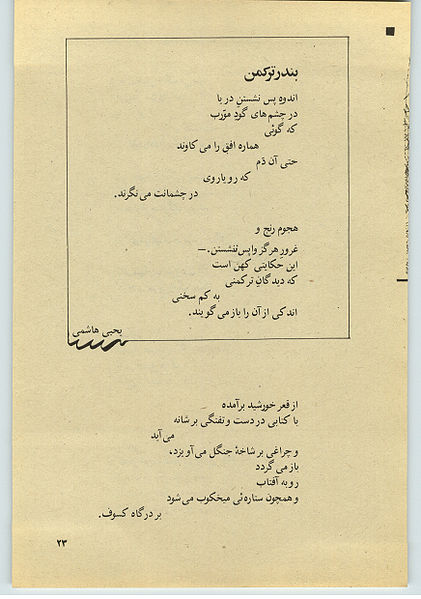 بندر ترکمن
اندوهِ پس نشستنِ دریا
در چشم‌های گودِ مورّب
که گوئی
هماره افق را می‌کاوند
حتی آن دَم
که رویاروی
در چشمانت می‌نگرند.
هجوم رنج و
غرورِ هرگز واپس ننشستن. —
این حکایتی کهن است
که دیدگانِ ترکمنی
به کم سخنی
اندکی از آن را باز می‌گویند.
یحیی هاشمی
از قعر خورشید برآمده
با کتابی در دست و تفنگی بر شانه
می‌آید
و چراغی بر شاخهٔ جنگل می‌آویزد،
باز می‌گردد
رو به آفتاب
و همچون ستاره‌ئی میخکوب می‌شود
بر درگاه کسوف.
۲۳